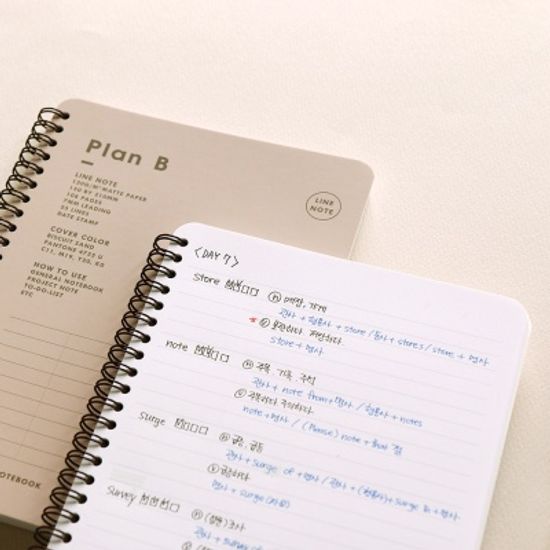 Plan B
LINE NOTE
120G/M² MATTE PAPER
150 BY 210MM
108 PAGES
7MM LEADING
25 LINES
DATE STAMP
COVER COLOR
BISCUIT SAND
PANTONE 4725 U
HOW TO USE
GENERAL NOTEBOOK
PROJECT NOTE
TO-DO-LIST
ETC
LINE
NOTE
NOTEBOOK
<DAY 7>
store ⓝ 매장, 가게
관사 + 형용사 + store / 동사 + stores / store + 명사
ⓥ 보관하다. 저장하다.
store + 명사
note ⓝ 주목, 기록, 주석
관사 + note from + 명사 / 형용사 + notes
ⓥ 주목하다. 주의하다.
note + 명사 / (Please) note + that 절
surge ⓝ 급증, 급등
관사 + surge of + 명사 / 관사 + (형용사) + surge in + 명사
ⓥ 급등하다
명사 + surge
survey ⓝ (설문)조사
관사 + survey of